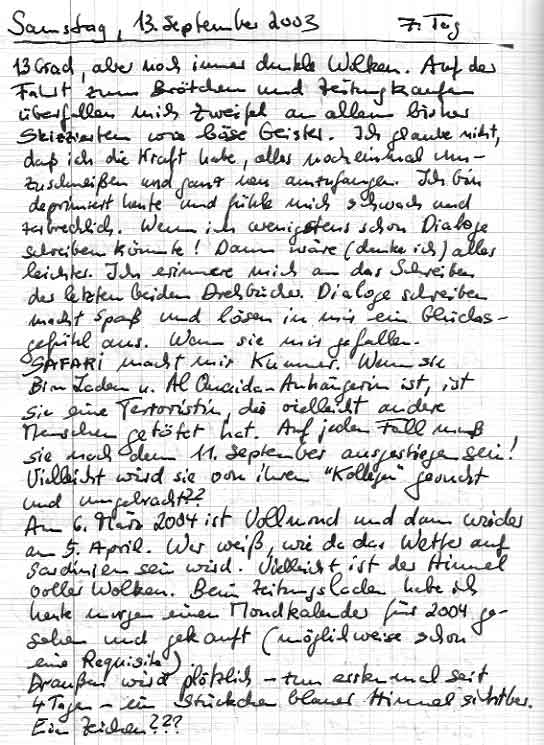 Samstag, 13. September 2003 7. Tag
13 Grad, aber noch immer dunkle Wolken. Auf der
Fahrt zum Brötchen und Zeitungkaufen
überfallen mich Zweifel an allem bisher
Skizzierten wie böse Geister. Ich glaube nicht,
daß ich die Kraft habe, alles noch einmal um-
zuschmeißen und ganz neu anzufangen. Ich bin
deprimiert heute und fühle mich schwach und
zerbrechlich. Wenn ich wenigstens schon Dialoge
schreiben könnte! Dann wäre (denke ich) alles
leichter. Ich erinnere mich an das Schreiben
der letzten beiden Drehbücher. Dialoge schreiben
macht Spaß und lösen in mir ein Glücks-
gefühl aus. Wenn sie mir gefallen.
SAFARI macht mir Kummer. Wenn sie
Bin Laden u. Al Quaida-Anhängerin ist, ist
sie eine Terroristin, die vielleicht andere
Menschen getötet hat. Auf jeden Fall muß
sie nach dem 11. September ausgestiegen sein!
Vielleicht wird sie von ihren "Kollegen" gesucht
und umgebracht??
Am 6. März 2004 ist Vollmond und dann wieder
am 5. April. Wer weiß, wie da das Wetter auf
Sardinien sein wird. Vielleicht ist der Himmel
voller Wolken. Beim Zeitungsladen habe ich
heute morgen einen Mondkalender für 2004 ge-
sehen und gekauft (möglichweise schon
eine Requisite).
Draußen wird plötzlich - zum ersten mal seit
4 Tagen - ein Stückchen blauer Himmel sichtbar.
Ein Zeichen???